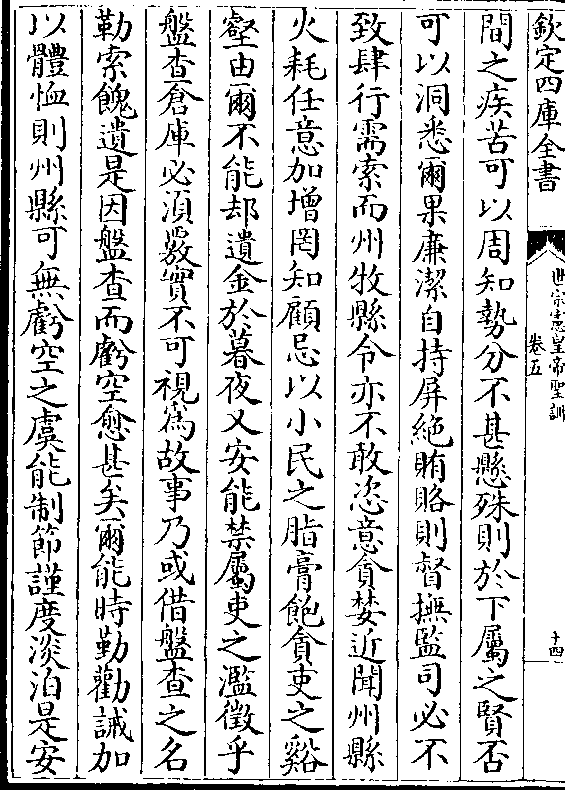 欽定四庫全書
世宗憲皇帝聖訓
卷五
十四
間之疾苦可以周知勢分不甚懸殊則於下屬之賢否
可以洞悉爾果廉潔自持屏絶賄賂則督撫監司必不
致肆行需索而州牧縣令亦不敢恣意貪婪近聞州縣
火耗任意加增罔知顧忌以小民之脂膏飽貪吏之谿
壑由爾不能却遺金於暮夜又安能禁屬吏之濫徵乎
盤查倉庫必須覈實不可視爲故事乃或借盤查之名
勒索餽遺是因盤查而虧空愈甚矣爾能時勤勸誡加
以體恤則州縣可無虧空之虞能制節謹度淡泊是安